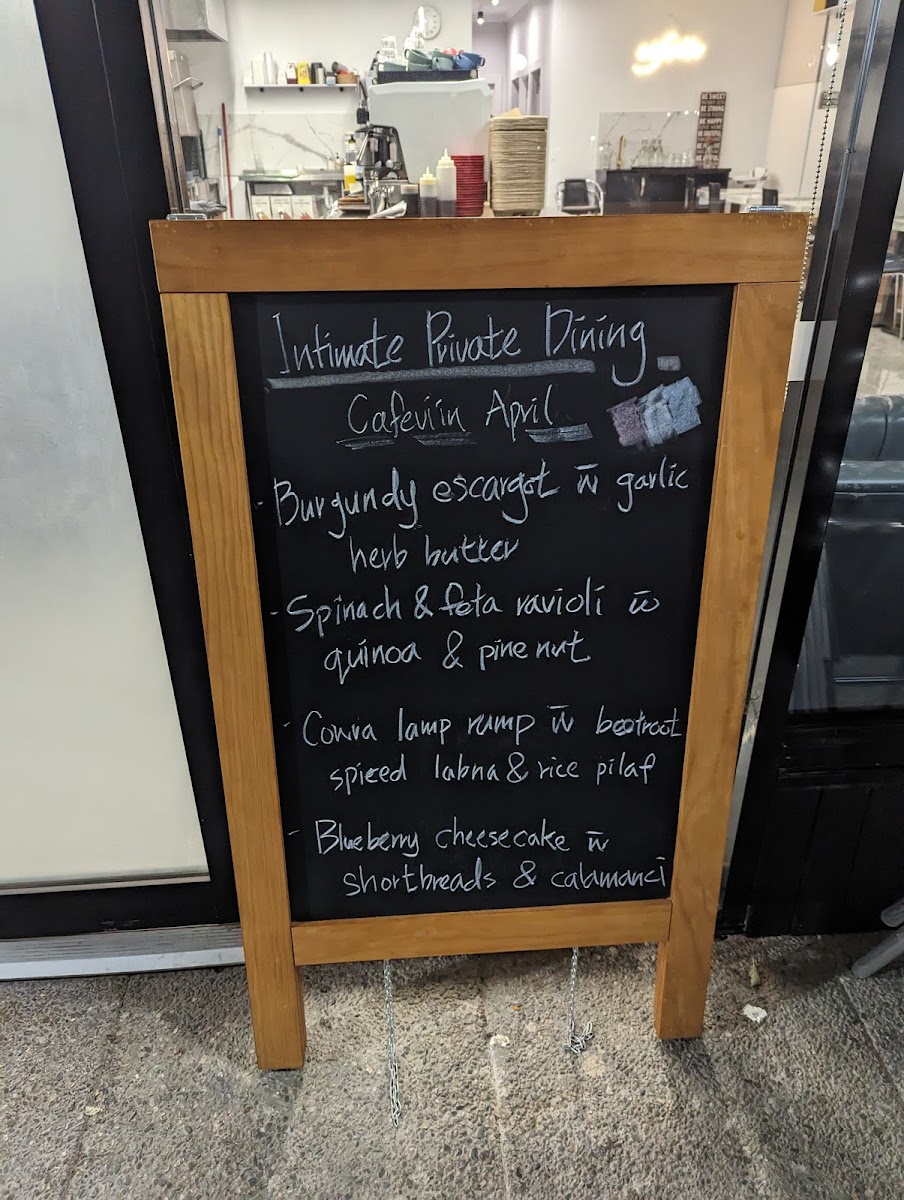 Intimate Private Dining
Cafeviin April
- Burgundy escargot w̄ garlic
herb butter
- Spinach & feta ravioli w̄
quinoa & pine nut
- Cowra lamp rump w̄ beetroot
spiced labna & rice pilaf
- Blueberry cheesecake w̄
shortbreads & calamanci
BE SWEET
BE STRONG
BE HAPPY